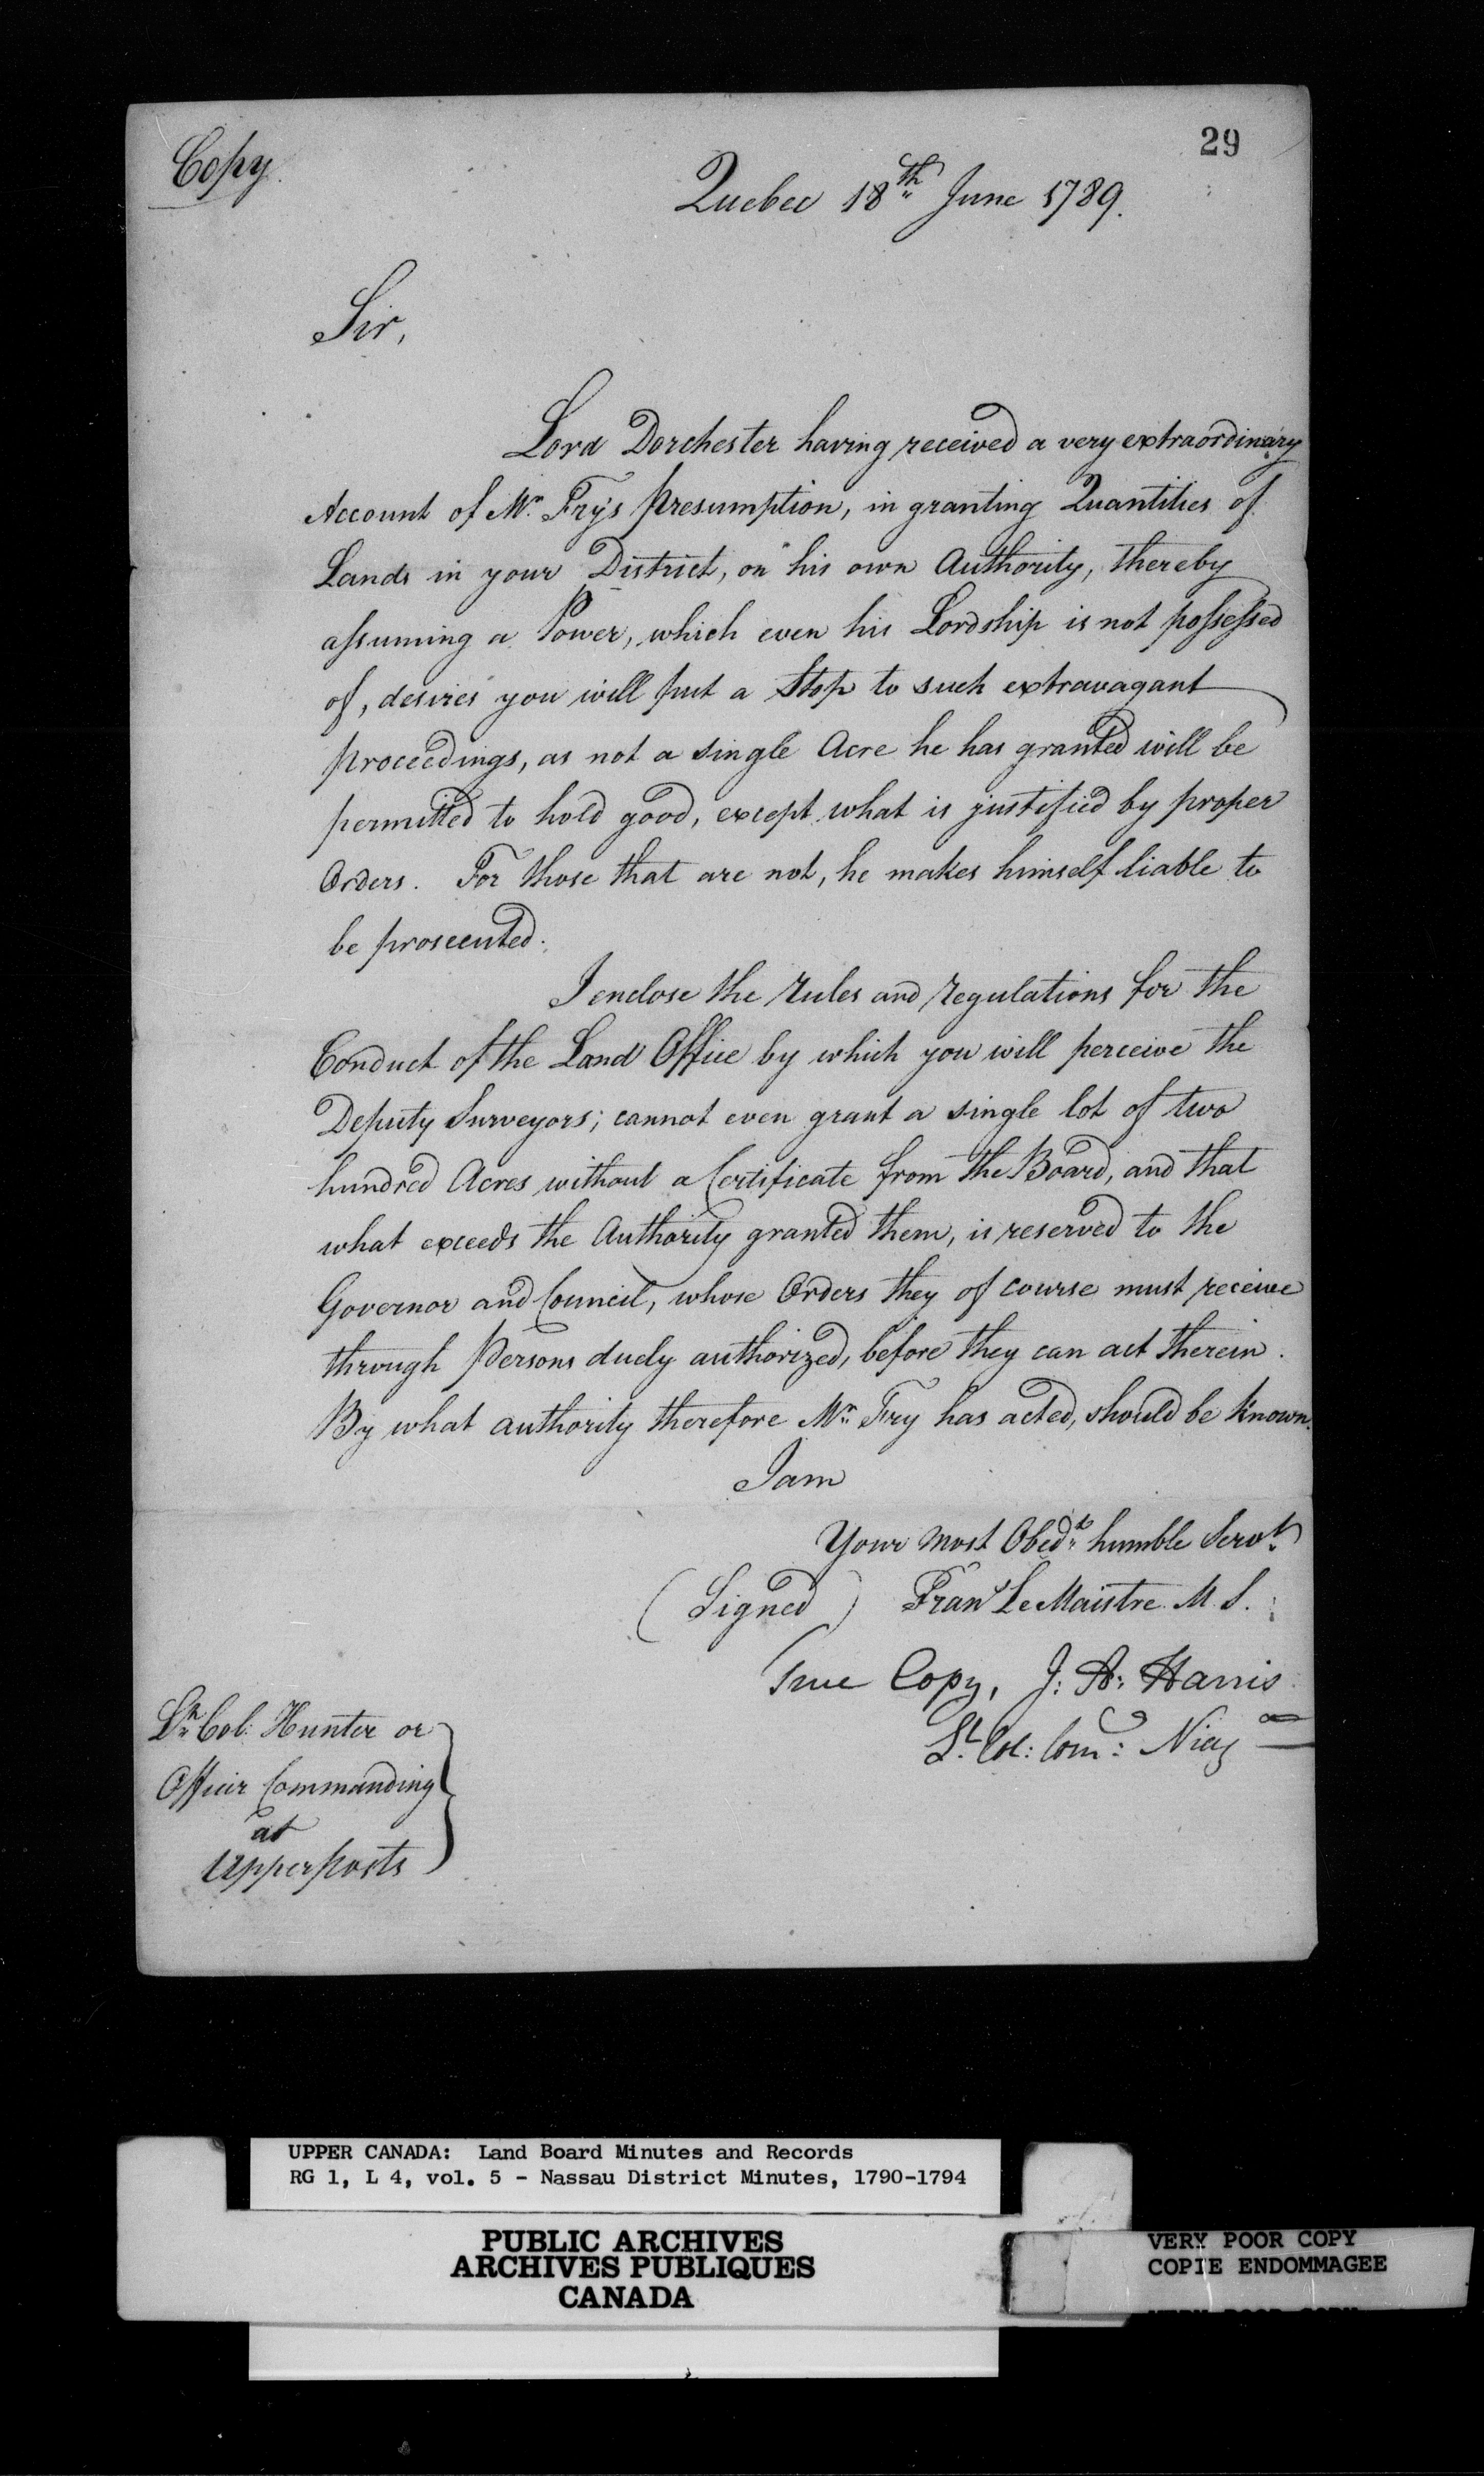 Copy.
29
Quebec 18th June 1789.
Sir,
Lord Dorchester having received a very extraordinary
Account of Mr. Fry's Presumption, in granting Quantities of
Lands in your District, on his own Authority, thereby
assuming a Power, which even his Lordship is not possessed
of, desires you will put a Stop to such extravagant
proceedings, as not a single Acre he has granted will be
permitted to hold good, except what is justified by proper
Orders. For those that are not, he makes himself liable to
be prosecuted.
I enclose the Rules and Regulations for the
Conduct of the Land Office by which you will perceive the
Deputy Surveyors; cannot even grant a single lot of two
hundred Acres without a Certificate from the Board, and that
what exceeds the Authority granted them, is reserved to the
Governor and Council, whose Orders they of course must receive
through Persons duely authorized, before they can act therein.
By what authority therefore Mr. Fry has acted, should be known.
I am
Your most Obedt. humble Servt.
(Signed) Frans LeMaistre M.S.
True Copy, J: A: Harris
Lt. Col: Com: Niag
Lt. Col: Hunter or
Officer Commanding
at
Upper posts
UPPER CANADA: Land Board Minutes and Records
RG 1, L 4, vol. 5 - Nassau District Minutes, 1790-1794
PUBLIC ARCHIVES
ARCHIVES PUBLIQUES
CANADA
VERY POOR COPY
COPIE ENDOMMAGEE